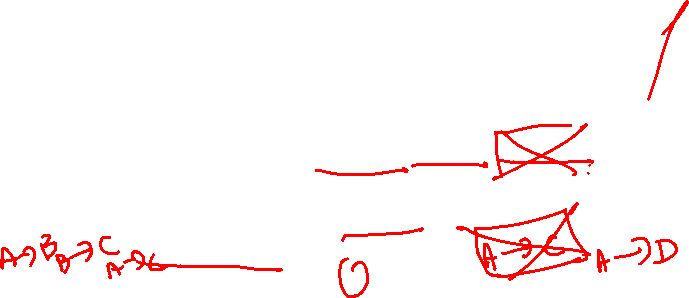 A→B B→C A→C
0
A→C A→D